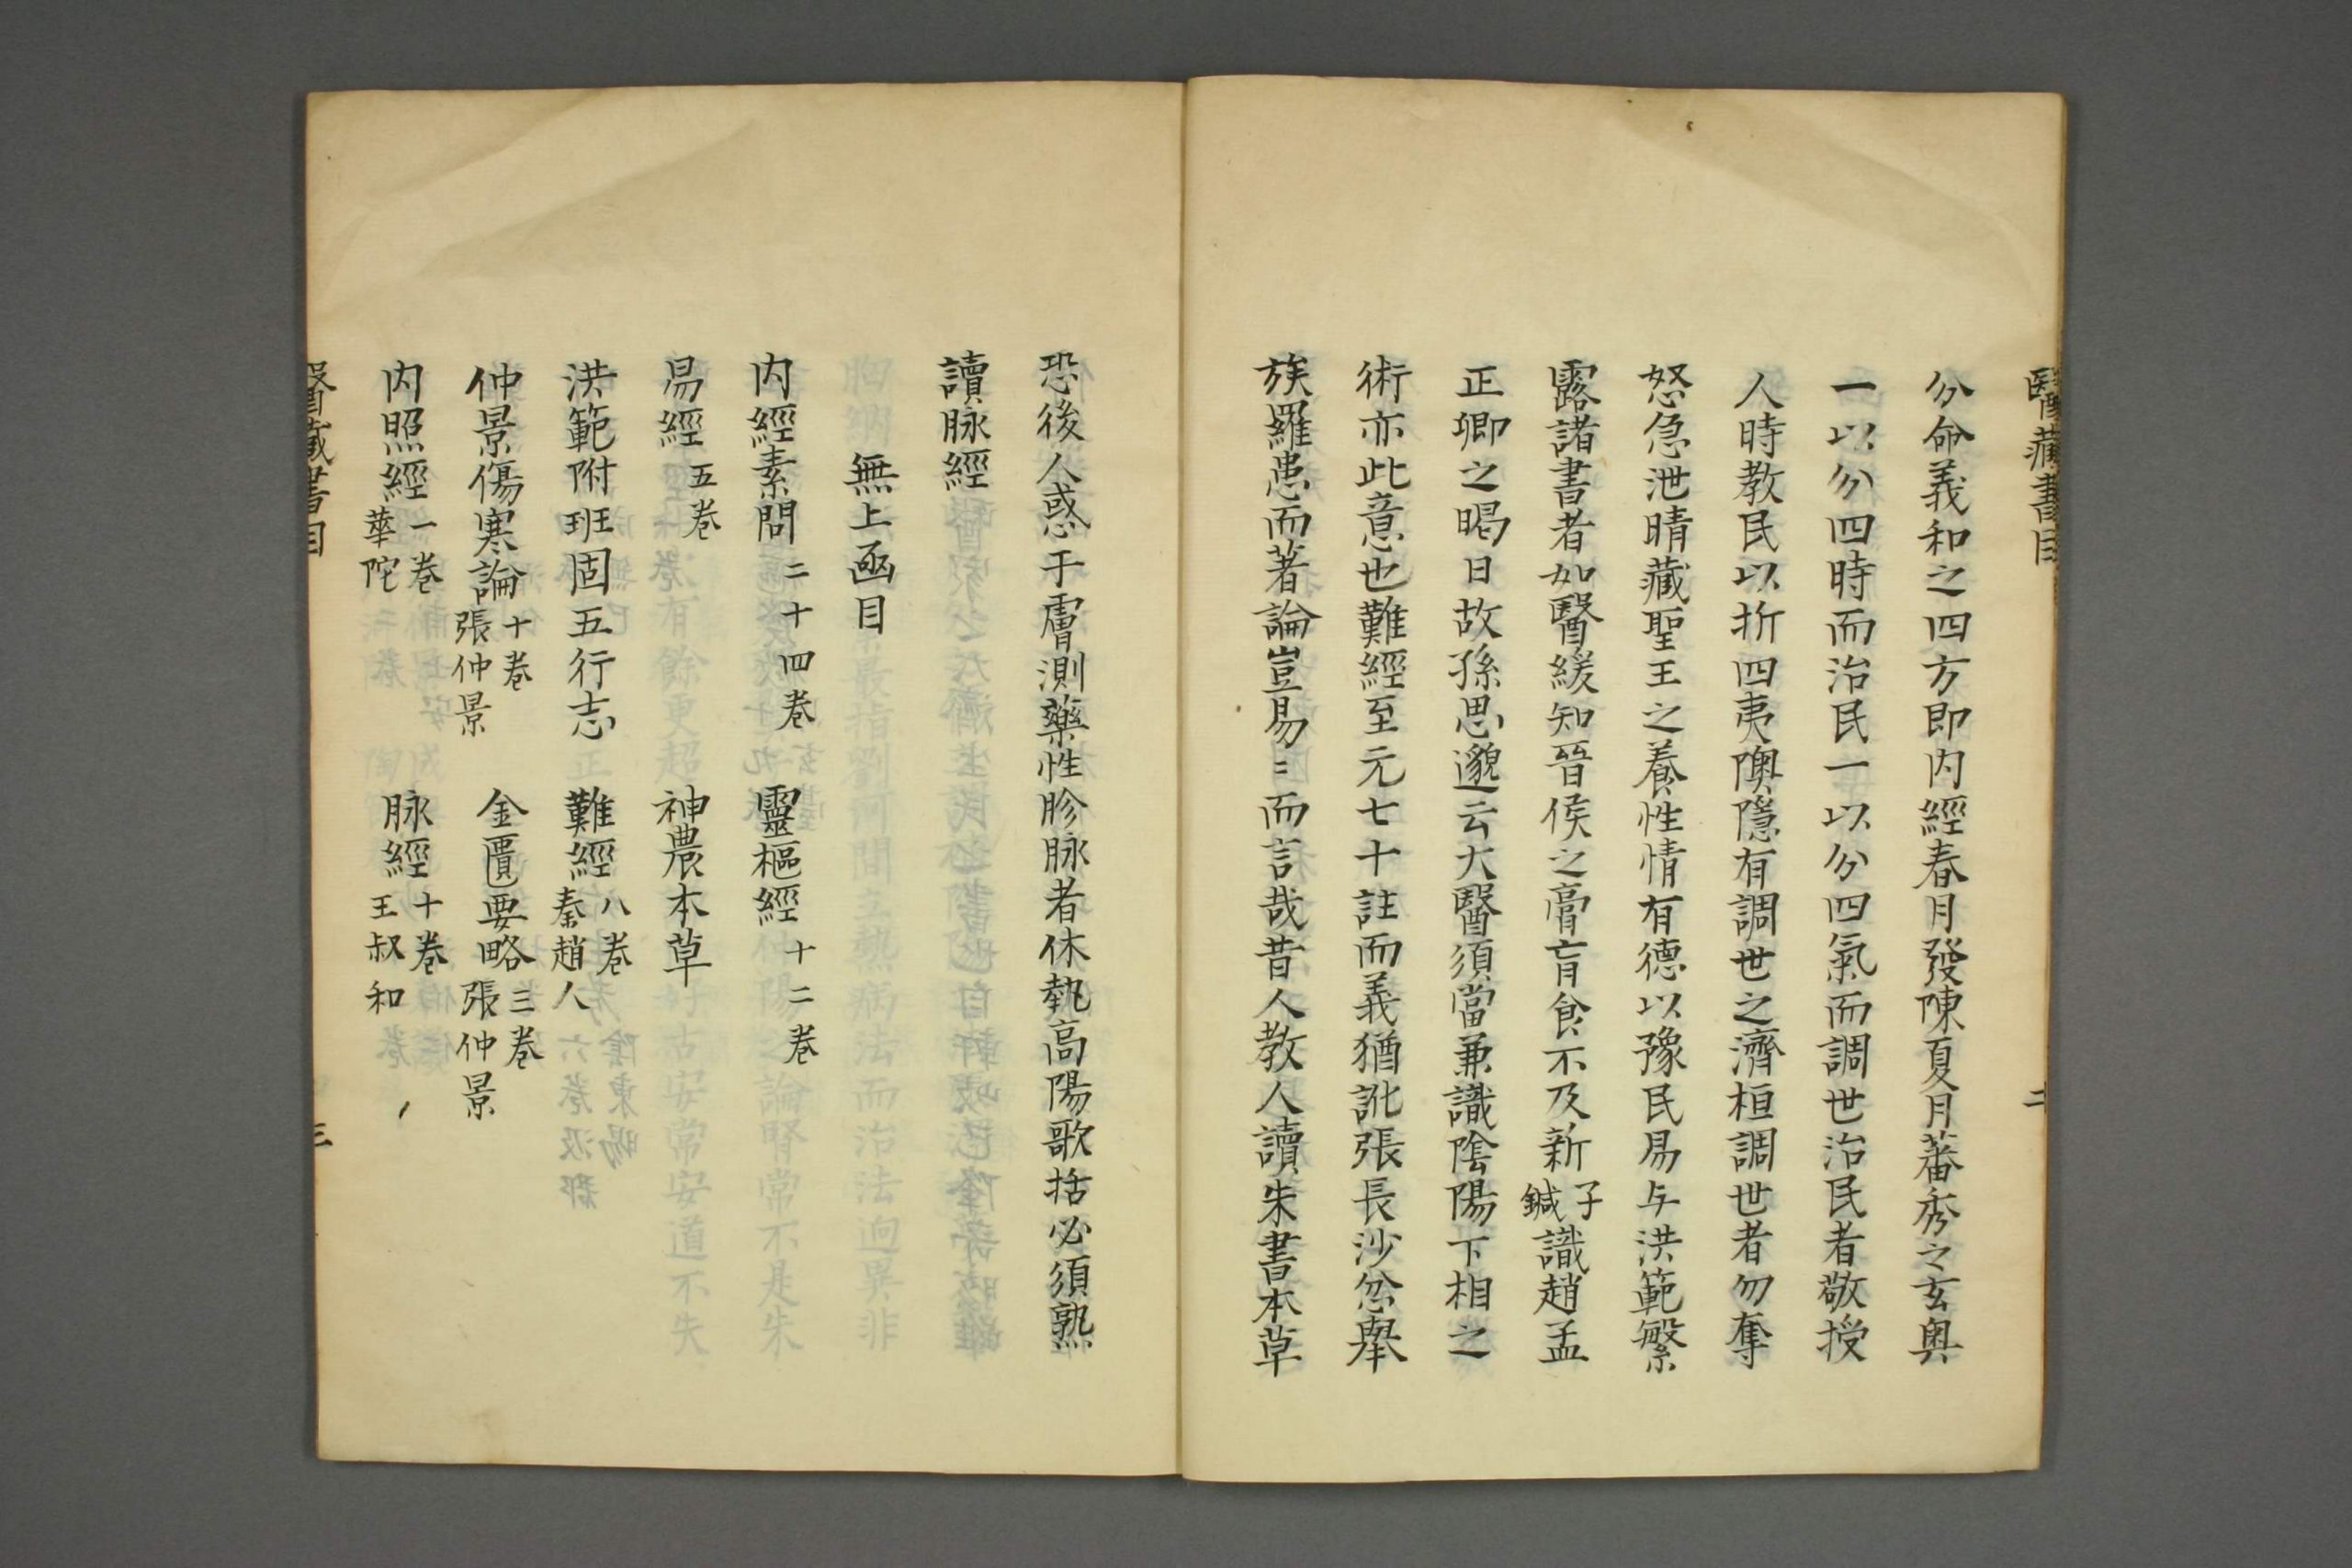 醫藏書目
二
分命羲和之四方即内經春月發陳夏月蕃秀之玄奧
一以分四時而治民一以分四氣而調世治民者敬授
人時教民以折四夷隩隱有調世之濟桓調世者勿奪
怒急泄晴藏聖王之養性情有德以豫民易与洪範繁
露諸書者如醫緩知晉侯之膏肓食不及新子鍼識趙孟
正卿之暍日故孫思邈云大醫須當兼識陰陽下相之
術亦此意也難經至元七十註而義猶訛張長沙忿舉
族羅患而著論豈易〻而言哉昔人教人讀朱書本草
恐後人惑于膚測藥性胗脉者休執高陽歌括必須熟
讀脉經
無上函目
内經素問 二十四卷 靈樞經 十二卷
易經 五卷 神農本草
洪範附班固五行志 難經 八卷 秦趙人
仲景傷寒論 十卷 張仲景 金匱要略 三卷 張仲景
内照經 一卷 華陀 脉經 十卷 王叔和
醫藏書目
三